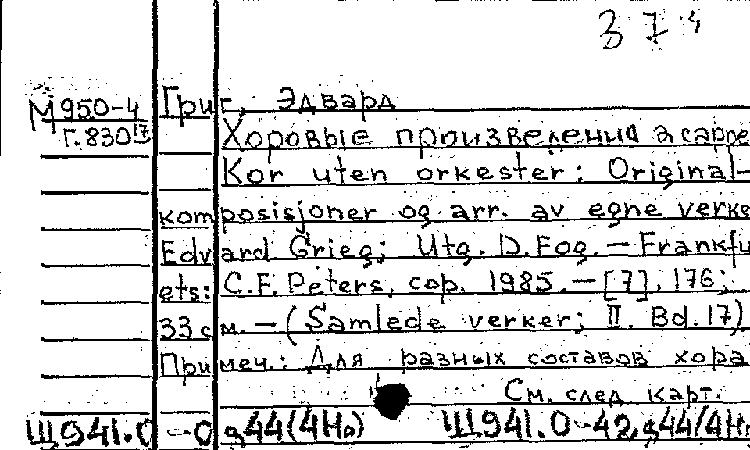 374
М950-4 Григ, Эдвард
Г.830 17 Хоровые произведения a cappe
Kor uten orkester: Original-
komposisjoner og arr. av egne verke
Edvard Grieg; Utg. D. Fog. — Frankfu
ets: C.F. Peters, cop. 1985. — [7], 176;
33 см. — (Samlede verker; II. Bd. 17)
Примеч.: Для разных составов хора
См. след. карт.
Щ941.0-0 я44(4Но) Щ941.0-42, я44(4Но